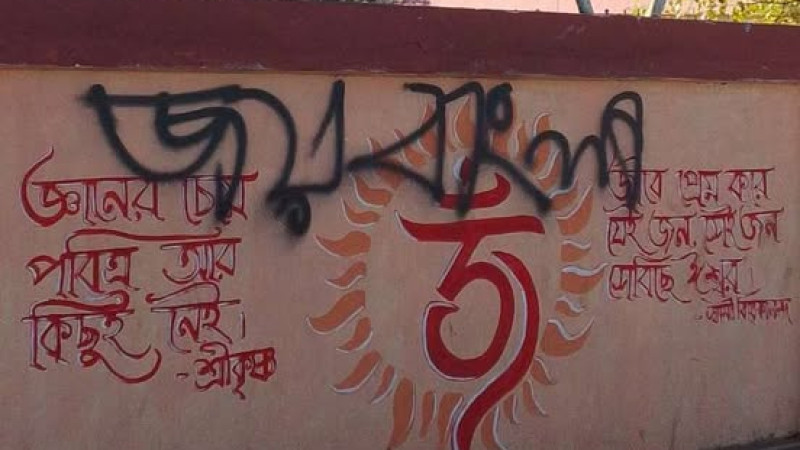 জয় বাংলা
জ্ঞানের চেয়ে
পবিত্র আর
কিছুই নেই।
- শ্রীকৃষ্ণ
ওঁ
জীবে প্রেম করে
যেই জন, সেই জন
সেবিছে ঈশ্বর
- স্বামী বিবেকানন্দ